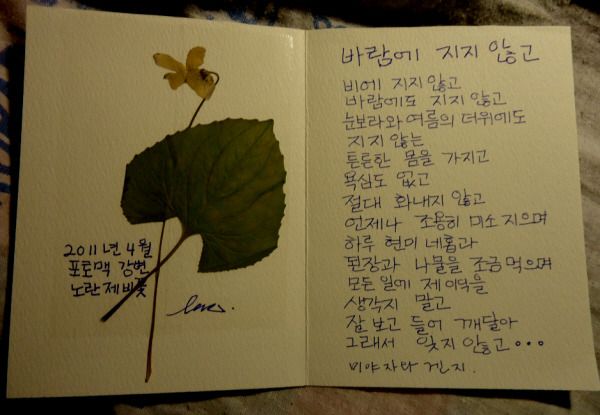 2011년 4월
포토맥 강변
노란 제비꽃
love.
바람에 지지 않고
비에 지지 않고
바람에도 지지 않고
눈보라와 여름의 더위에도
지지 않는
튼튼한 몸을 가지고
욕심도 없고
절대 화내지 않고
언제나 조용히 미소 지으며
하루 현미 네홉과
된장과 나물을 조금 먹으며
모든 일에 제 이익을
생각지 말고
잘 보고 들어 깨달아
그래서 잊지 않고...
미야자타 겐지.